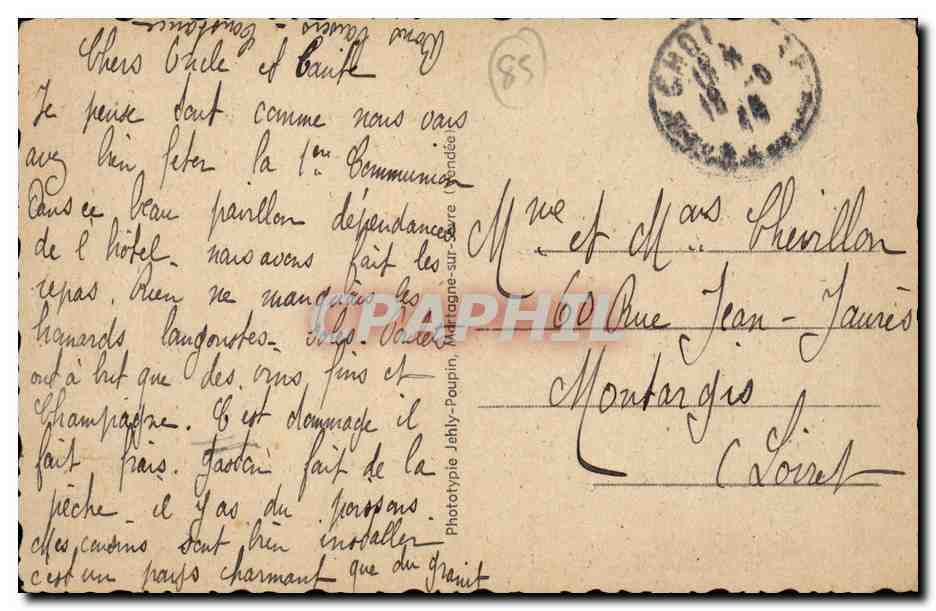 Chers Oncle et Tante
Je pense tout comme nous vous
avez bien fêter la 1ere Communion
Dans ce beau pavillon dépendances
de l'hôtel. nous avons fait les
repas. Rien ne manquais les
homards langoustes. 
ont a but que des vins fins et
Champagne. C'est dommage il
fait frais. Gaston fait de la
pêche. il y as du poissons.
Mes cousins sont bien installer
c'est un pays charmant que du granit
Bons Baisers - Constance
85
Phototypie Jehly-Poupin, Mortagne-sur-Sèvre (Vendée)
CPAPHIL
Mme et Mons Chevillon
60 Rue Jean-Jaurès
Montargis
(Loiret